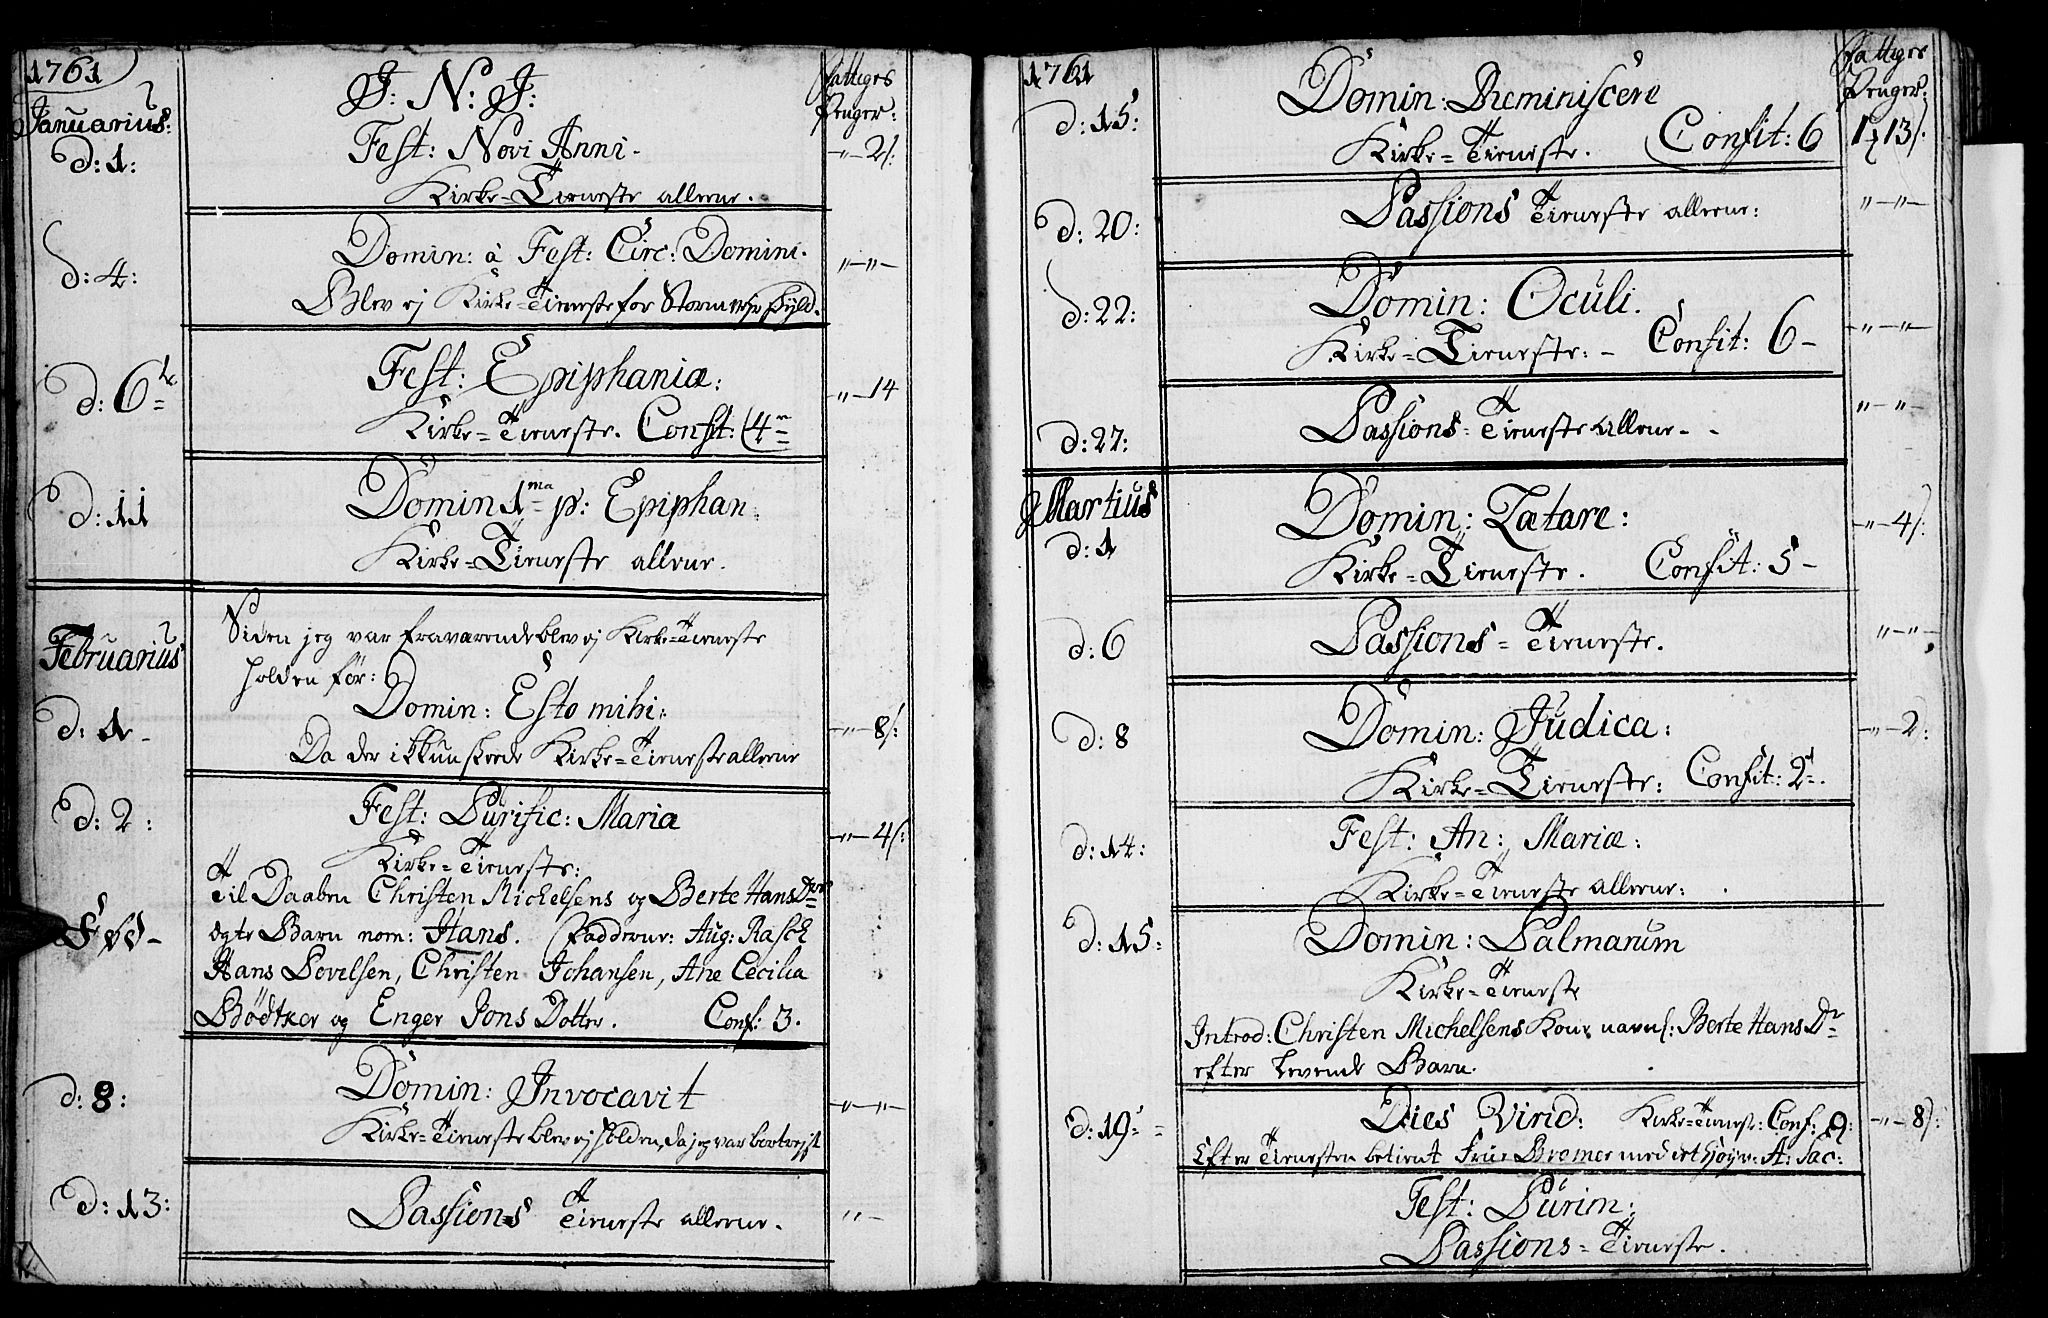 1761
Januarius:
J: N: J:
Fattiges
Penger:
d: 1:
Fest: Novi Anni.
-"-2/:
Kirke-Tieneste allene.
d: 4:
Domin: à Fest: Circ: Domini.
"-"-
Blev ej Kirke-Tieneste for Storm
d: 6te
Fest: Epiphaniæ:
"-14
Kirke-Tieneste. Confit: 4
d: 11
Domin 1ma p: Epiphan:
Kirke-Tieneste allene.
Februarius
Siden jeg var fraværende blev ej Kirke-Tieneste
holden før:
d: 1-
Domin: Esto mihi:
-"-8/:
Da der ikkun skeede Kirke-Tieneste allene
d: 2:
Fest: Purific: Mariæ
-"-4/:
Kirke-Tieneste:
Til Daaben Christen Michelsens og Berte Hans Dr
ægte Barn nom: Hans. Fadderne: Aug: Rasch
Hans Povelsen, Christen Johansen, Ane Cecilia
Bödtker og Enger Jons Dotter. Conf: 3.
d: 8:
Domin: Invocavit
"-"-
Kirke-Tieneste blev ej holden, da jeg var bortrejst
d: 13:
Passions Tieneste allene.
"-
1761
Fattiges
Penger:
d: 15:
Domin: Reminiscere
Kirke-Tieneste. Confit: 6
13/:
d: 20:
Passions Tieneste allene:
"-"-
d: 22:
Domin: Oculi.
Kirke-Tieneste: - Confit: 6-
-"-"-
d: 27:
Passions-Tieneste allene--
"-"-
Martius
d: 1
Domin: Lætare:
-"-4/:
Kirke-Tieneste. Confit: 5-
d: 6
Passions-Tieneste.
"-"-
d: 8
Domin: Judica:
-"-2:
Kirke-Tieneste: Confit: 2
d: 14:
Fest: An: Mariæ:
Kirke-Tieneste allene:
d: 15:
Domin: Palmarum
Kirke-Tieneste
Introd: Christen Michelsens Kone navnl: Berte Hans Dr
efter levende Barn.
d: 19:
Dies Virid: Kirke-Tienest: Conf: 9:
-"-8/:
Efter Tienesten betient Frue Bremer med det højv: A: Sac:
Fest: Purim:
Passions-Tieneste.